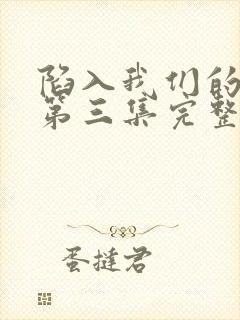 陷入我们的
第三集完整
蛋挞君